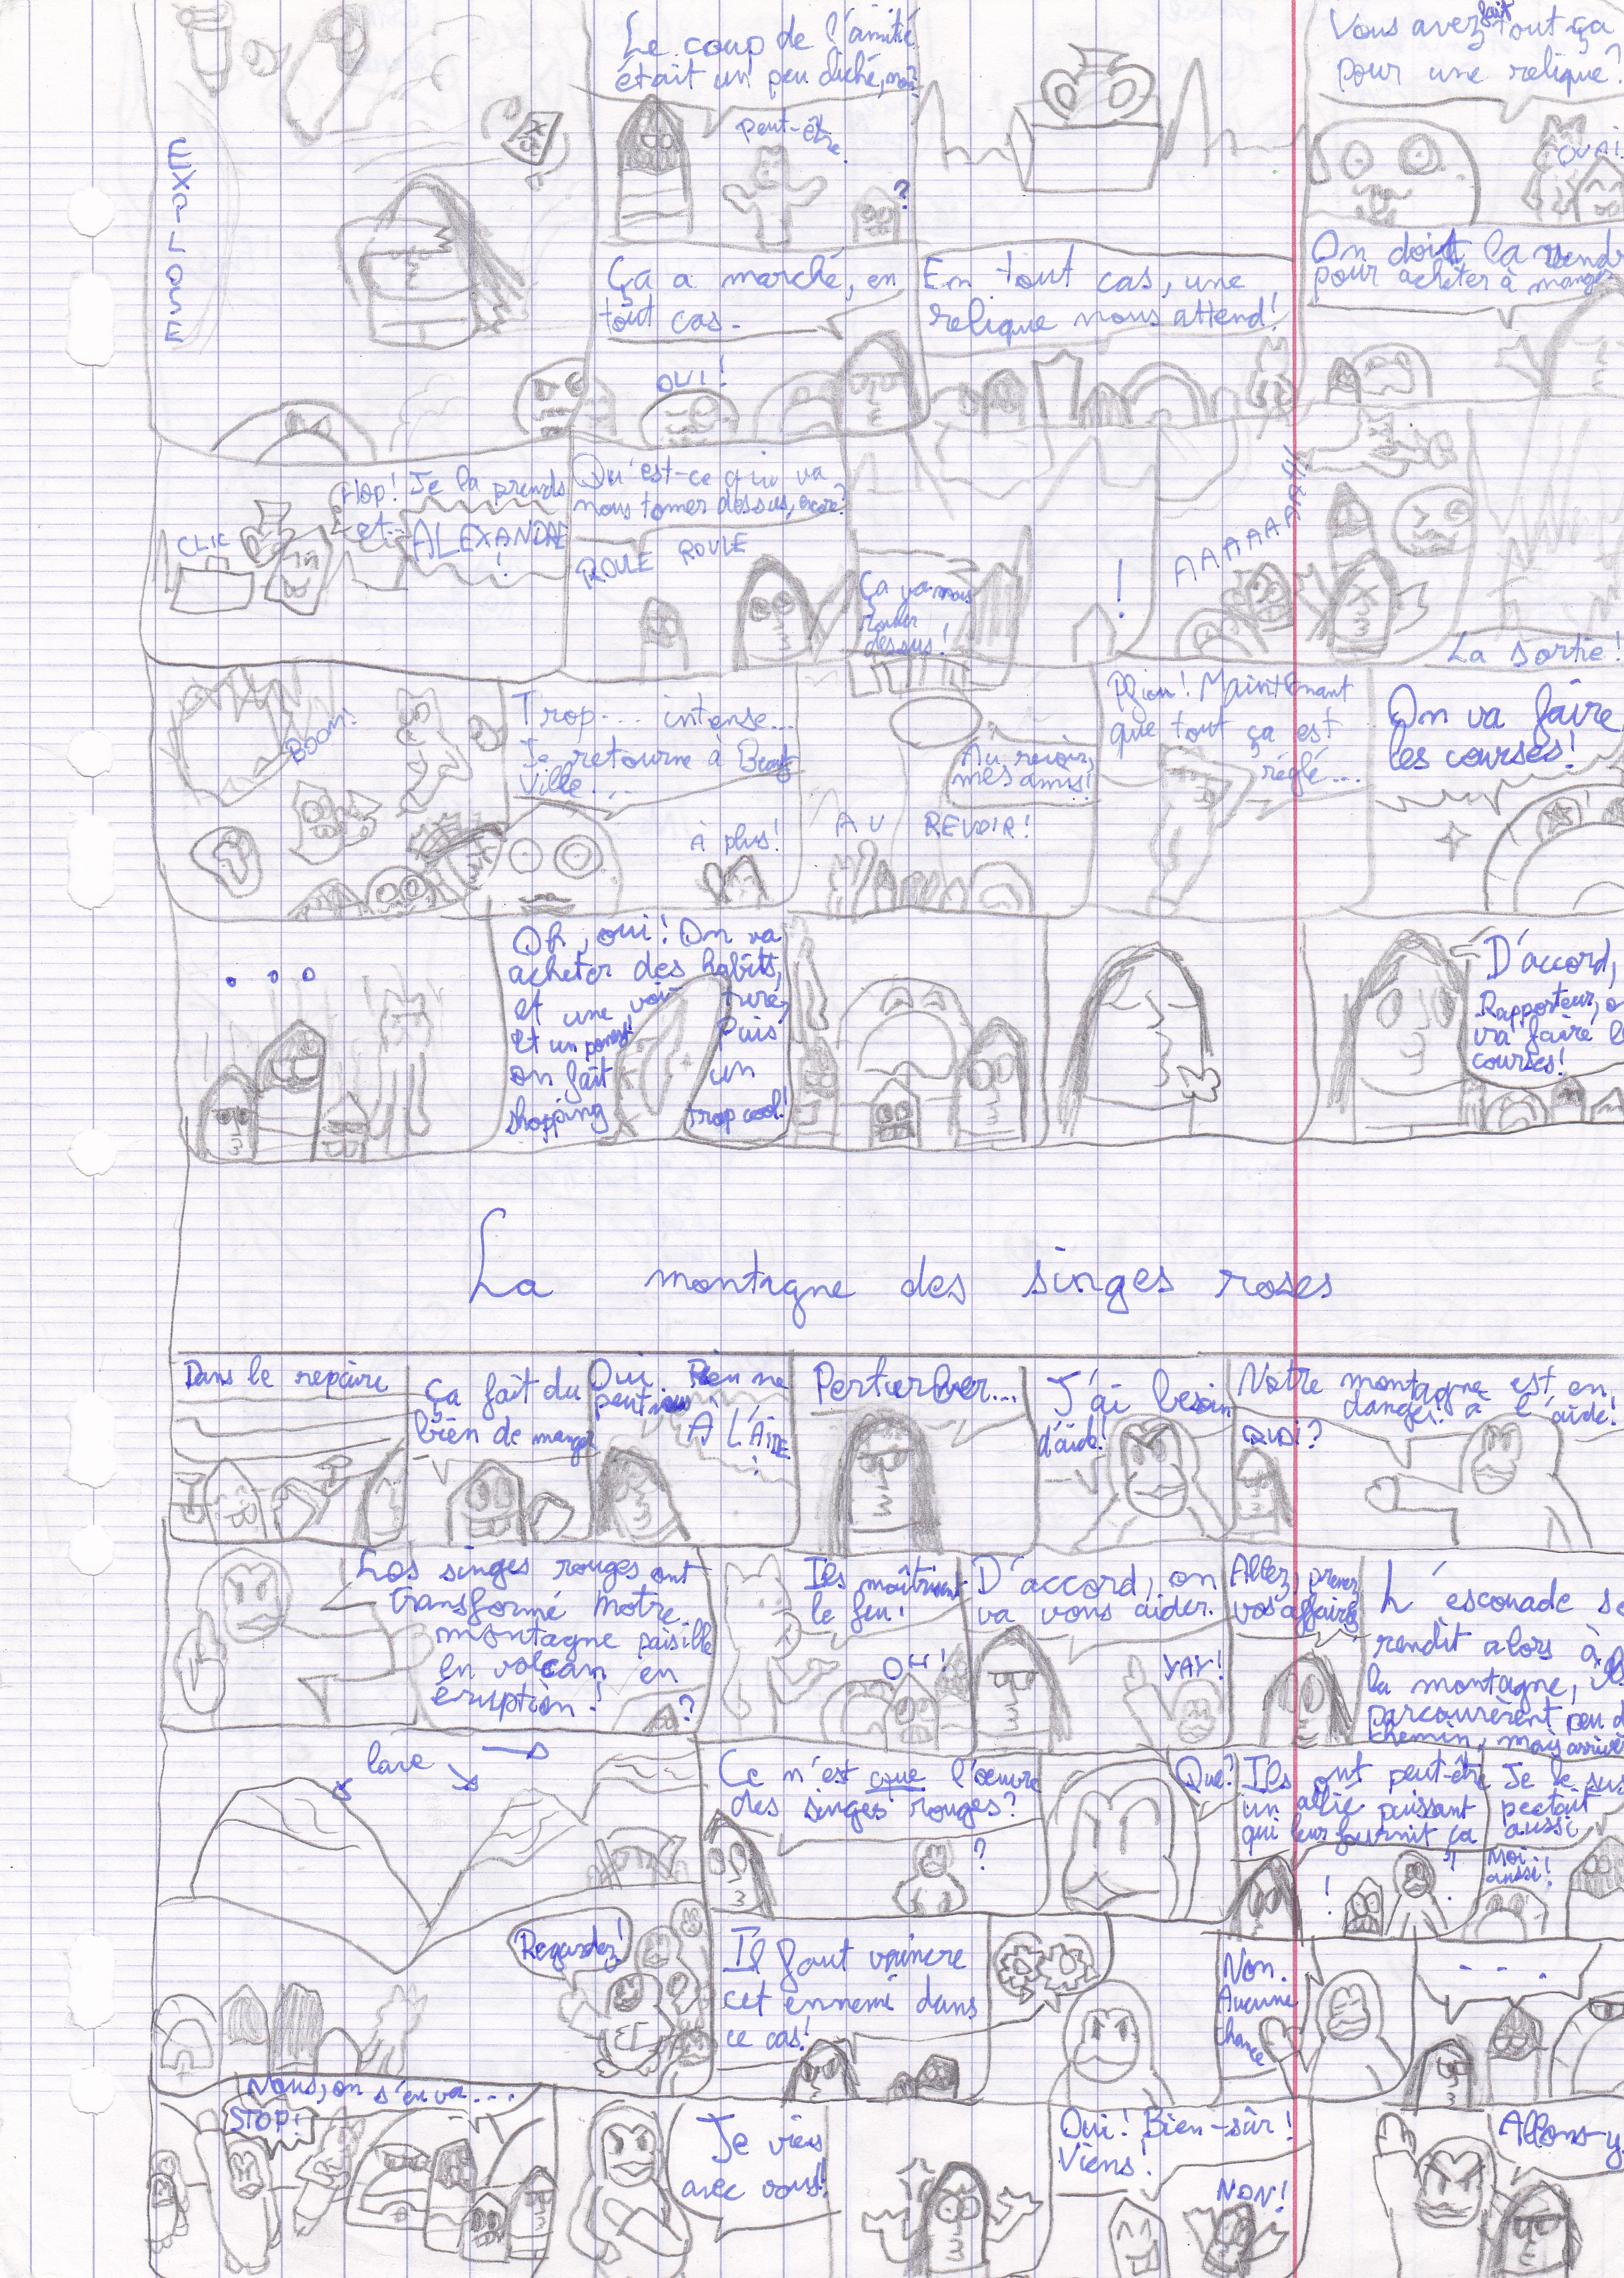 EXPLOSE
Le coup de l'amitié
était un peu cliché, non?
peut-être.
?
Vous avez fait tout ça
pour une relique?
OUAI
Ça a marché, en
tout cas.
OUI!
En tout cas, une
relique nous attend!
On doit la vend
pour acheter à manger
CLIC
Hop! Je la prends
et...
ALEXANDRE
!
Qu'est-ce qui va
nous tomer dessus, encore?
ROULE ROULE
Ça va nous
rouler
dessus!
!
AAAAAARH!!
La sortie!
BOOM!
Trop... intense...
Je retourne à
Ville...
À plus!
Au revoir,
mes amis!
AU REVOIR!
Pfiou! Maintenant
que tout ça est
réglé...
On va faire
les courses!
...
Oh, oui! On va
acheter des habits,
et une voiture,
Et un poney!
Puis
on fait un
shopping trop cool!
D'accord,
Rapporteur, o
va faire le
courses!
La montagne des singes roses
Dans le repaire
Ça fait du
bien de manger
Oui Rien ne
peut nous
À L'AIDE
!
Perturber...
J'ai besoin
d'aide!
Notre montagne est en
danger! à l'aide!
QUOI?
Les singes rouges ont
transformé notre
montagne paisible
en volcan en
éruption!
?
Ils maîtrisent
le feu!
OH!
D'accord, on
va vous aider.
YAY!
Allez, prenez
vos affaires
L'escouade se
rendit alors à
la montagne, ils
parcourèrent peu d
chemin, mais arrivè
lave
Regardez!
Ce n'est que l'œuvre
des singes rouges?
?
Que?
Ils ont peut-être
un allié puissant
qui leur fournit ça
!
Je le sus
pectait
aussi
Moi
aussi!
Il faut vaincre
cet ennemi dans
ce cas!
Non.
Aucune
chance
...
Nous, on s'en va...
STOP!
Je viens
avec vous!
Oui! Bien-sûr!
Viens!
NON!
Allons-y